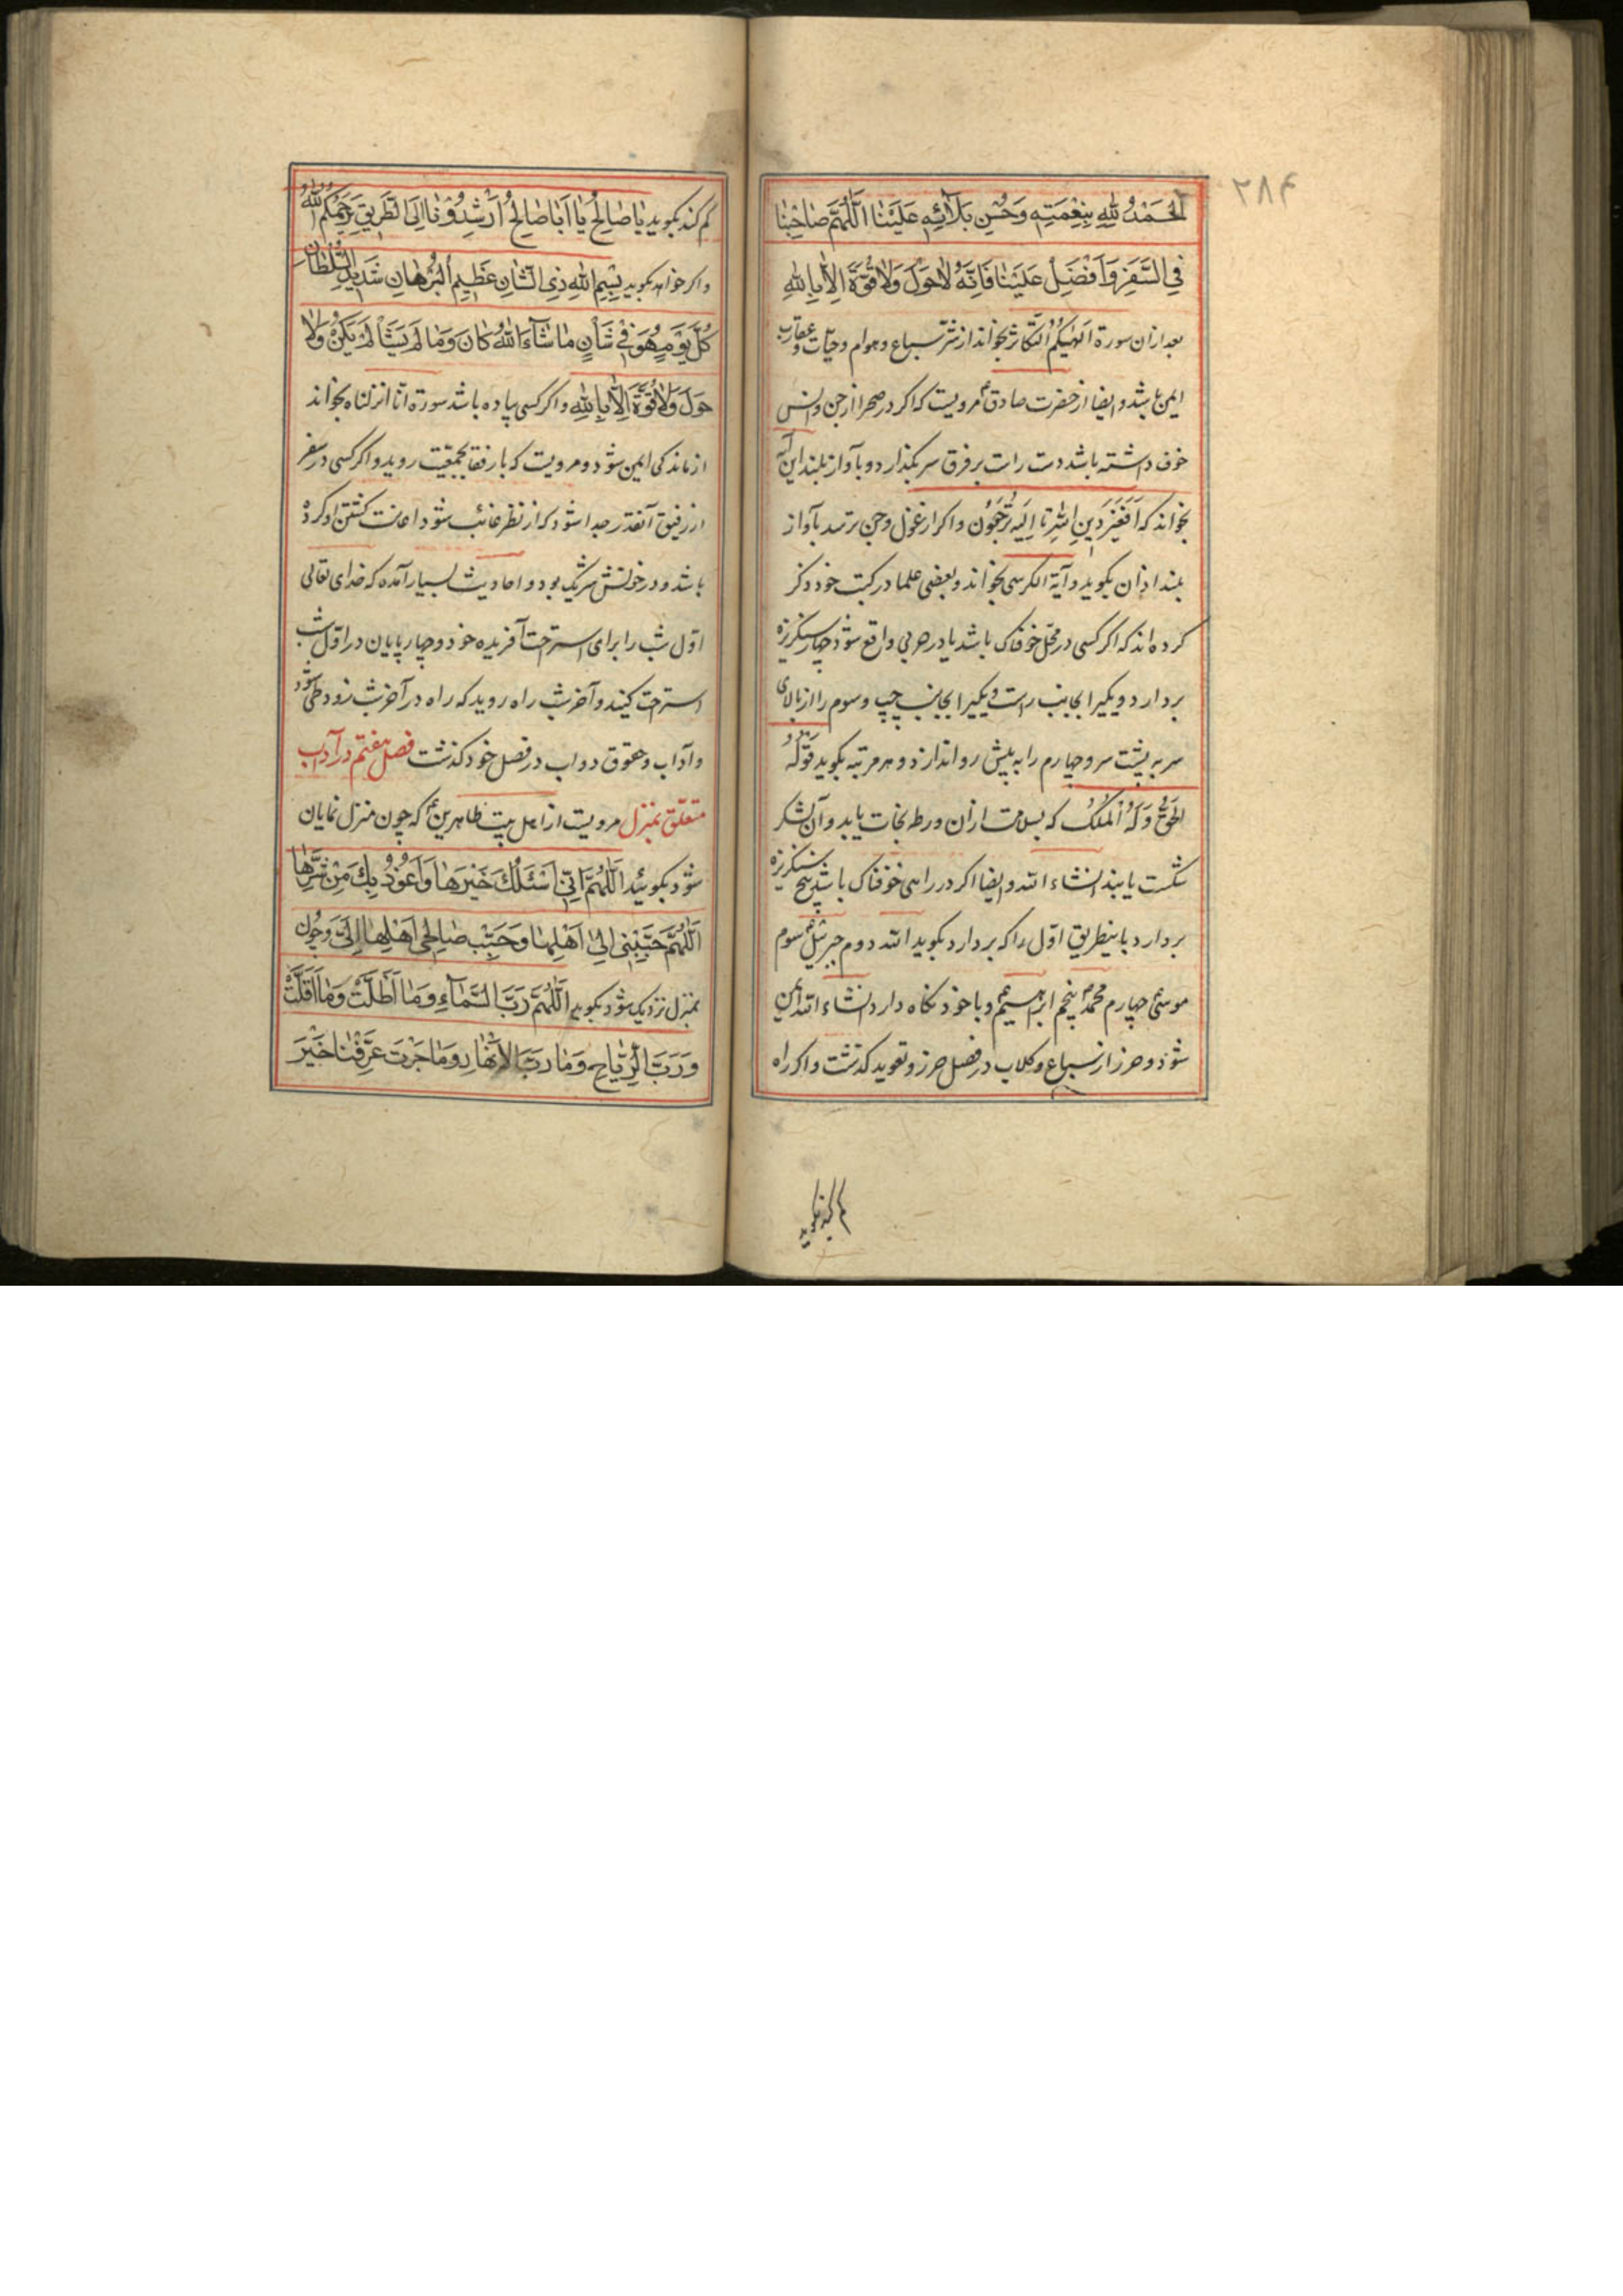 ۲۸۴
اَلْحَمْدُ لِلّٰهِ بِنِعْمَتِهِ وَحُسْنِ بَلَآئِهِ عَلَيْنَا اَللّٰهُمَّ صَاحِبْنَا
فِي السَّفَرِ وَاَفْضِلْ عَلَيْنَا فَاِنَّهُ لَاحَوْلَ وَلَاقُوَّةَ اِلَّا بِاللّٰهِ
بعد ازان سورة اَلْهٰيكُمُ التَّكَاثُرُ بخواند از شر سباع وهوام وحيات وعقارب
ايمن باشد وايضا از حضرت صادق ع مرويست كه اكر در صحرا از جن وانس
خوف داشته باشد دست راست بر فرق سر بكذارد وبآواز بلند اين آيه
بخواند كه اَفَغَيْرَ دِينِ اللّٰهِ تا اِلَيْهِ تُرْجَعُونَ واكر از غول وجن ترسد بآواز
بلند اذان بكويد وآية الكرسى بخواند وبعضى علما در كتب خود ذكر
كرده اند كه اكر كسى در محل خوفناك باشد يا در حربى واقع شود چهار سنكريزه
بردارد ويكيرا بجانب راست ويكيرا بجانب چپ وسوم را از بالاى
سر به پشت سر وچهارم را به پيش رو اندازد وهر مرتبه بكويد قَوْلُهُ
الْحَقُّ وَلَهُ الْمُلْكُ كه بسلامت ازان ورطه نجات يابد وآن لشكر
شكست يابند انشاء الله وايضا اكر در راهى خوفناك باشد پنج سنكريزه
بردارد باينطريق اول را كه بردارد بكويد الله دوم جبرئيل ع سوم
موسى ع چهارم محمد ص پنجم ابرهيم ع وبا خود نكاه دارد انشاء الله ايمن
شود وحرز از سباع وكلاب در فصل حرز وتعويذ كذشت واكر راه
كم كند بكويد
كم كند بكويد يَا صَالِحُ يَا اَبَا صَالِحُ اَرْشِدُوْنَا اِلَى الطَّرِيقِ يَرْحَمُكُمُ اللّٰهُ
واكر خواهد بكويد بِسْمِ اللّٰهِ ذِي الشَّانِ عَظِيمِ الْبُرْهَانِ شَدِيدِ السُّلْطَانِ
كُلَّ يَوْمٍ هُوَ فِي شَأْنٍ مَا شَآءَ اللّٰهُ كَانَ وَمَا لَمْ يَشَأْ لَمْ يَكُنْ وَلَا
حَوْلَ وَلَا قُوَّةَ اِلَّا بِاللّٰهِ واكر كسى پياده باشد سورة انا انزلناه بخواند
از ماندكى ايمن شود ومرويست كه با رفقا بجمعيت رويد واكر كسى در سفر
از رفيق آنقدر جدا شود كه از نظر غائب شود اعانت كشتن او كرده
باشد ودر خونش شريك بود واحاديث بسيار آمده كه خداى تعالى
اول شب را براى استراحت آفريده خود وچهارپايان در اول شب
استراحت كنيد وآخر شب راه رويد كه راه در آخر شب زود طى شود
وآداب وحقوق دواب در فصل خود كذشت فصل هفتم در آداب
متعلق بمنزل مرويست از اهل بيت طاهرين ع كه چون منزل نمايان
شود بكوئيد اَللّٰهُمَّ اِنِّي اَسْئَلُكَ خَيْرَهَا وَاَعُوْذُ بِكَ مِنْ شَرِّهَا
اَللّٰهُمَّ حَبِّبْنِي اِلٰى اَهْلِهَا وَحَبِّبْ صَالِحِي اَهْلِهَا اِلَيَّ وچون
بمنزل نزديك شود بكويد اَللّٰهُمَّ رَبَّ السَّمَآءِ وَمَا اَظَلَّتْ وَمَا اَقَلَّتْ
وَرَبَّ الرِّيَاحِ وَمَا رَبَّ الْاَنْهَارِ وَمَا جَرَتْ عَرِّفْنَا خَيْرَ